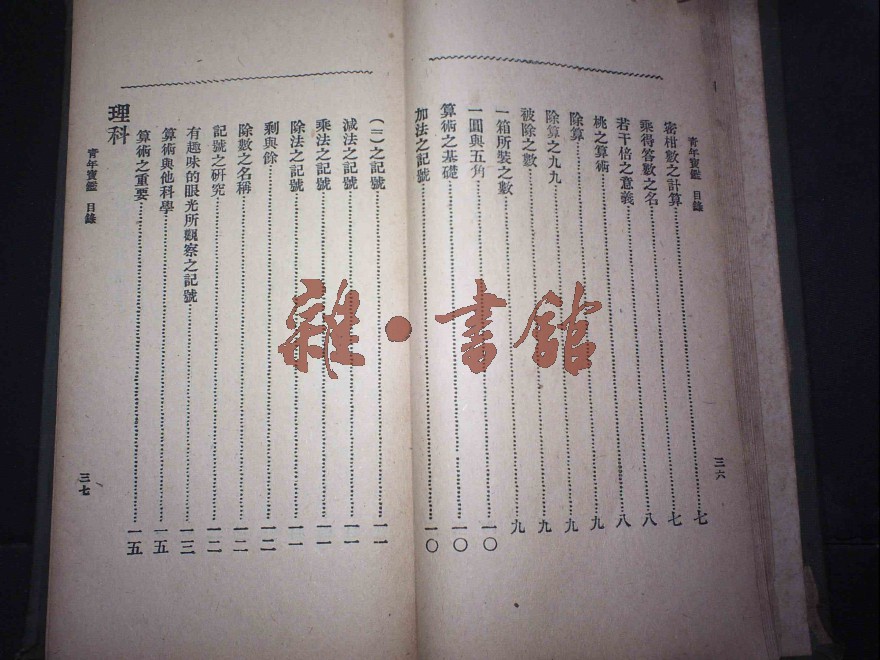 青年寶鑑 目錄
三六
密柑數之計算……七
乘得答數之名……七
若干倍之意義……八
桃之算術……八
除算……九
除算之九九……九
被除之數……九
一箱所裝之數……九
一圓與五角……一〇
算術之基礎……一〇
加法之記號……一〇
（二）之記號……一一
減法之記號……一一
乘法之記號……一一
除法之記號……一一
剩與餘……一二
除數之名稱……一二
記號之研究……一二
有趣味的眼光所觀察之記號……一三
算術與他科學……一五
算術之重要……一五
理科
青年寶鑑 目錄
三七
雜·書館